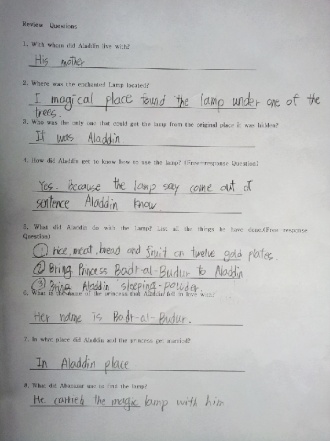 Review Questions
1. With whom did Aladdin live with?
His mother
2. Where was the enchanted Lamp located?
I magical place found the lamp under one of the
trees.
3. Who was the only one that could get the lamp from the original place it was hidden?
It was Aladdin
4. How did Aladdin get to know how to use the lamp? (Free-response Question)
Yes. Because the lamp say come out of
sentence Aladdin know
5. What did Aladdin do with the Lamp? List all the things he have done.(Free response
Question)
① rice, meat, bread and fruit on twelve gold plates.
② Bring Princess Badr-al-Budur to Aladdin
③ Bring Aladdin sleeping-powder.
6. What is the name of the princess that Aladdin fell in love with?
Her name is Badr-al-Budur.
7. In what place did Aladdin and the princess get married?
In Aladdin place
8. What did Abanazar use to find the lamp?
He carries the magic lamp with him